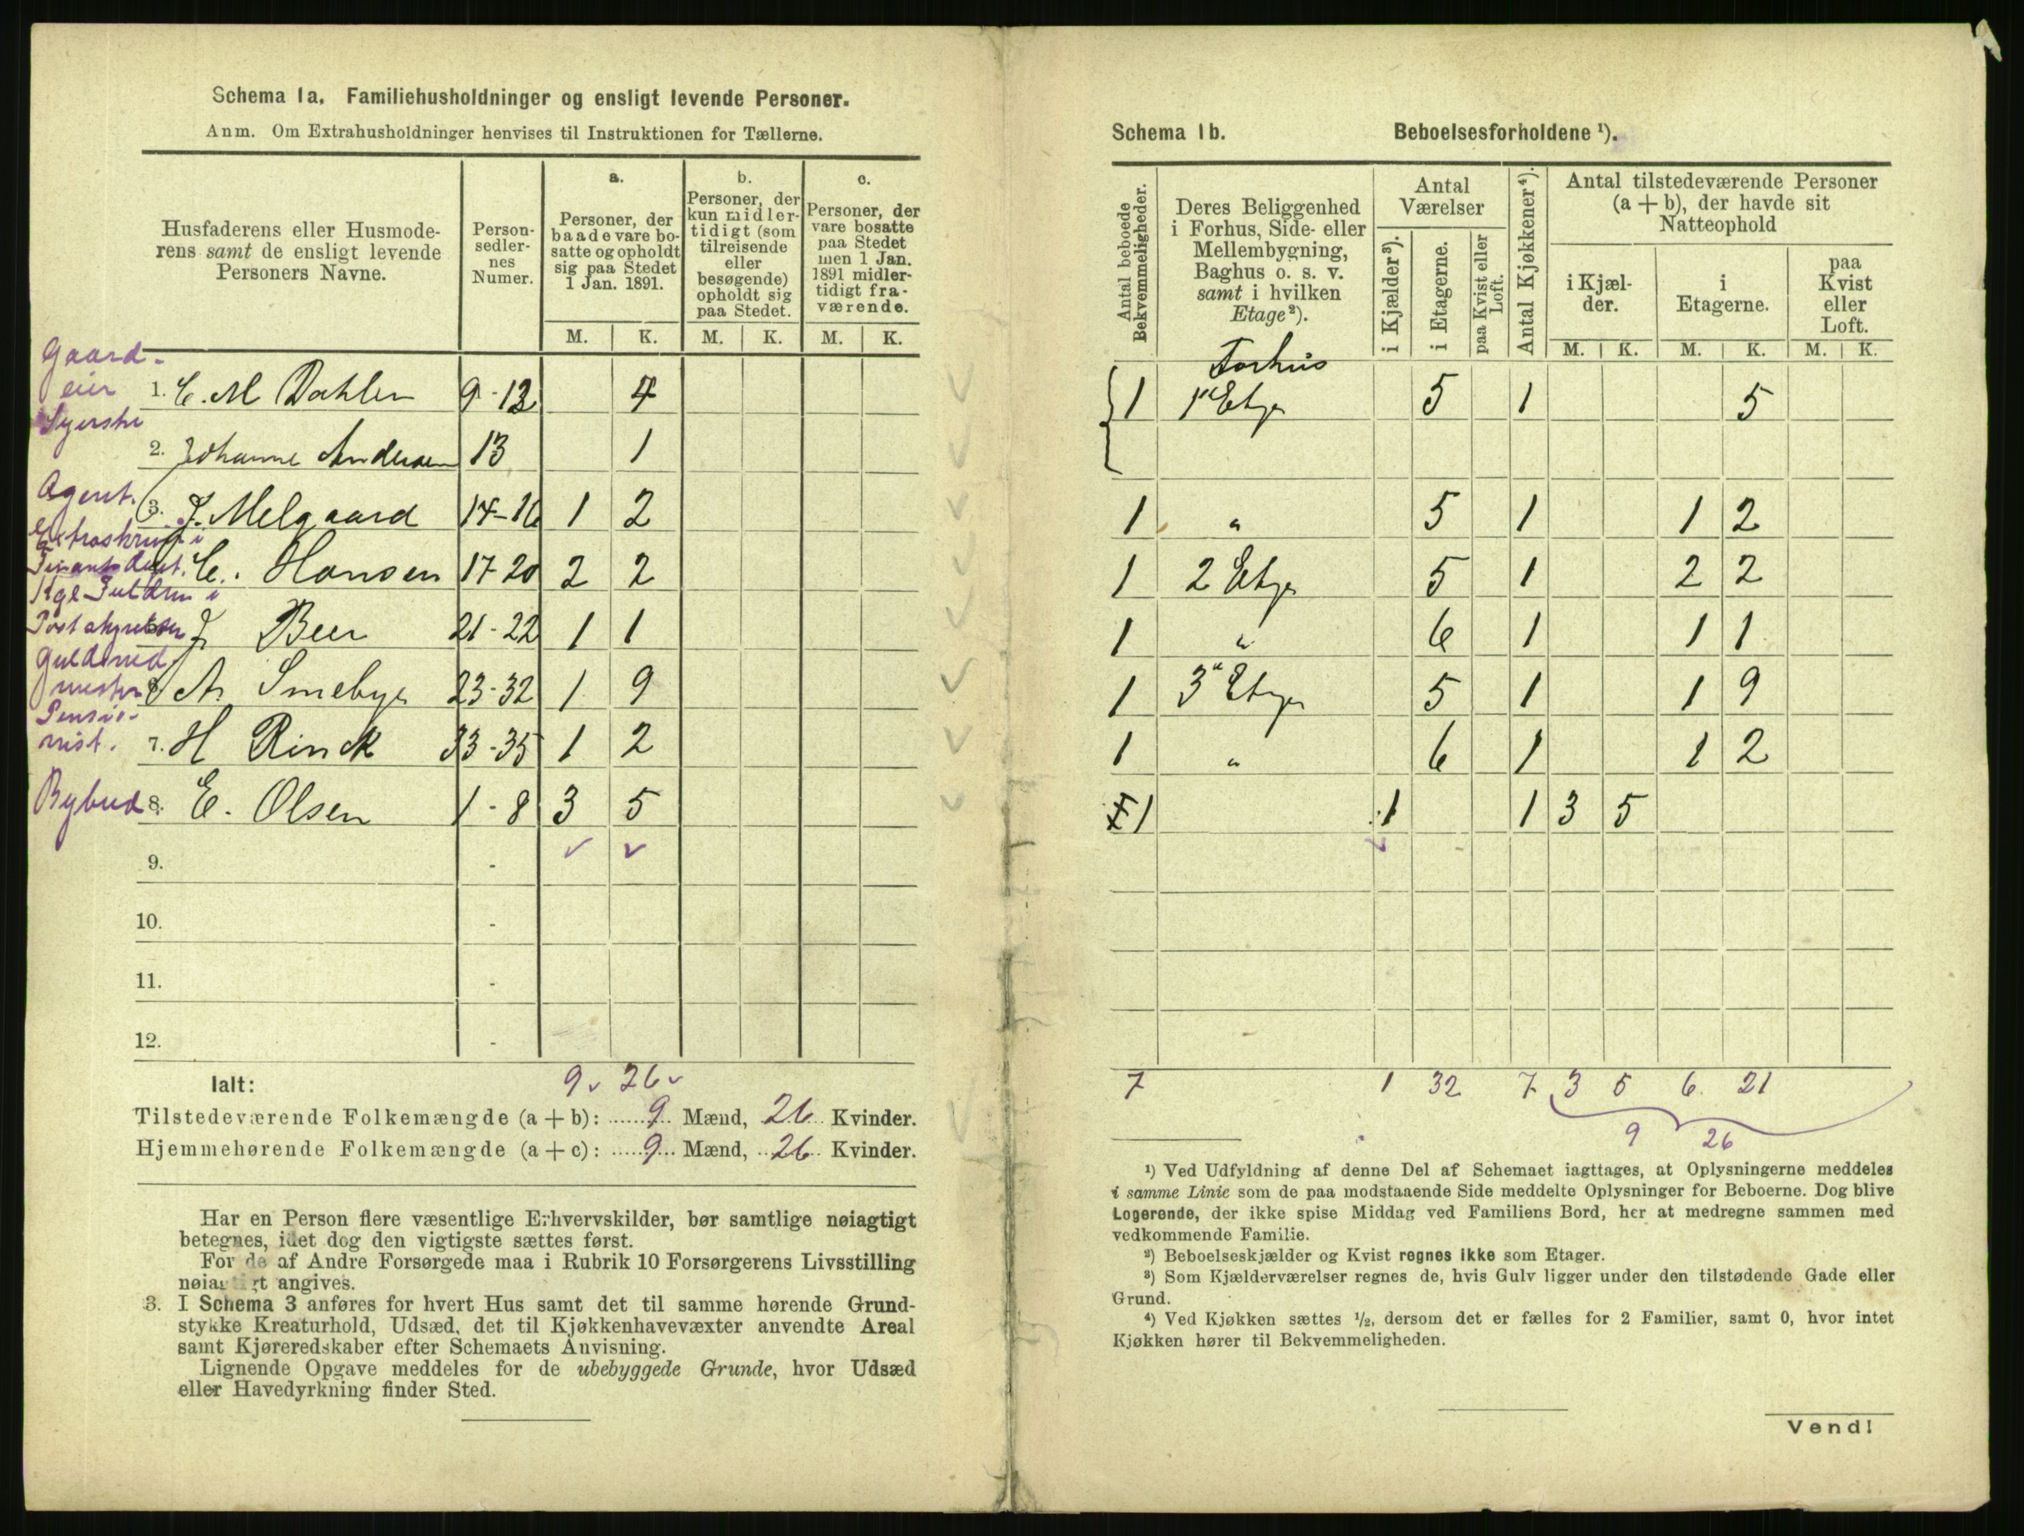 Schema 1a. Familiehusholdninger og ensligt levende Personer.
Anm. Om Extrahusholdninger henvises til Instruktionen for Tællerne.
Husfaderens eller Husmode-
rens samt de ensligt levende
Personers Navne.
Person-
sedler-
nes
Numer.
a.
Personer, der
baade vare bo-
satte og opholdt
sig paa Stedet
1 Jan. 1891.
b.
Personer, der
kun midler-
tidigt (som
tilreisende
eller
besøgende)
opholdt sig
paa Stedet.
c.
Personer, der
vare bosatte
paa Stedet
men 1 Jan.
1891 midler-
tidigt fra-
værende.
M. K. M. K. M. K.
Gaard-
eier 1. C. M Dahlen 9-12 4
Syerske
2. Johanne Andersen 13 1
Agent. 3. J. Melgaard 14-16 1 2
Extraskriv i
C. Hansen 17-20 2 2
Kgl Fuldm i
Poststyrelsen J Beer 21-22 1 1
Guldsmed
mester A. Smebye 23-32 1 9
Pensio-
nist. 7. H Rinck 33-35 1 2
Bybud 8. E. Olsen 1-8 3 5
9. -
10.
11. -
12. -
Ialt: 9 26
Tilstedeværende Folkemængde (a + b): 9 Mænd, 26 Kvinder.
Hjemmehørende Folkemængde (a + c): 9 Mænd, 26 Kvinder.
Har en Person flere væsentlige Erhvervskilder, bør samtlige nøiagtigt
betegnes, idet dog den vigtigste sættes først.
For de af Andre Forsørgede maa i Rubrik 10 Forsørgerens Livsstilling
nøiagtigt angives.
3. I Schema 3 anføres for hvert Hus samt det til samme hørende Grund-
stykke Kreaturhold, Udsæd, det til Kjøkkenhavevæxter anvendte Areal
samt Kjøreredskaber efter Schemaets Anvisning.
Lignende Opgave meddeles for de ubebyggede Grunde, hvor Udsæd
eller Havedyrkning finder Sted.
Schema 1b. Beboelsesforholdene ¹).
Antal beboede
Bekvemmeligheder.
Deres Beliggenhed
i Forhus, Side- eller
Mellembygning,
Baghus o. s. v.
samt i hvilken
Etage²).
Antal
Værelser
i Kjælder³).
i Etagerne.
paa Kvist eller
Loft.
Antal Kjøkkener⁴).
Antal tilstedeværende Personer
(a + b), der havde sit
Natteophold
i Kjæl-
der.
i
Etagerne.
paa
Kvist
eller
Loft.
M. K. M. K. M. K.
Forhus
1 1' Etge 5 1 5
1 " 5 1 1 2
1 2 Etge 5 1 2 2
1 " 6 1 1 1
1 3" Etge 5 1 1 9
1 " 6 1 1 2
1 1 1 3 5
7 1 32 7 3 5 6 21
9 26
¹) Ved Udfyldning af denne Del af Schemaet iagttages, at Oplysningerne meddeles
i samme Linie som de paa modstaaende Side meddelte Oplysninger for Beboerne. Dog blive
Logerende, der ikke spise Middag ved Familiens Bord, her at medregne sammen med
vedkommende Familie.
²) Beboelseskjælder og Kvist regnes ikke som Etager.
³) Som Kjælderværelser regnes de, hvis Gulv ligger under den tilstødende Gade eller
Grund.
⁴) Ved Kjøkken sættes ½, dersom det er fælles for 2 Familier, samt 0, hvor intet
Kjøkken hører til Bekvemmeligheden.
Vend!